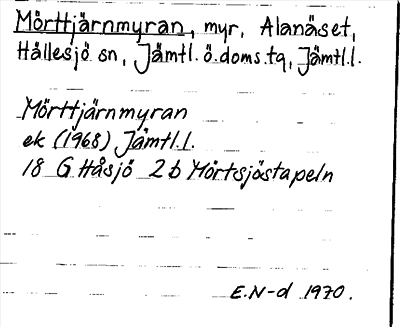 Mörttjärnmyran, myr, Alanäset,
Hållesjö sn, Jämtl. ö. doms. tg, Jämtl.l.
Mörttjärnmyran
ek (1968) Jämtl.l.
18 G Håsjö 2b Mörtsjöstapeln
E.N-d 1970.